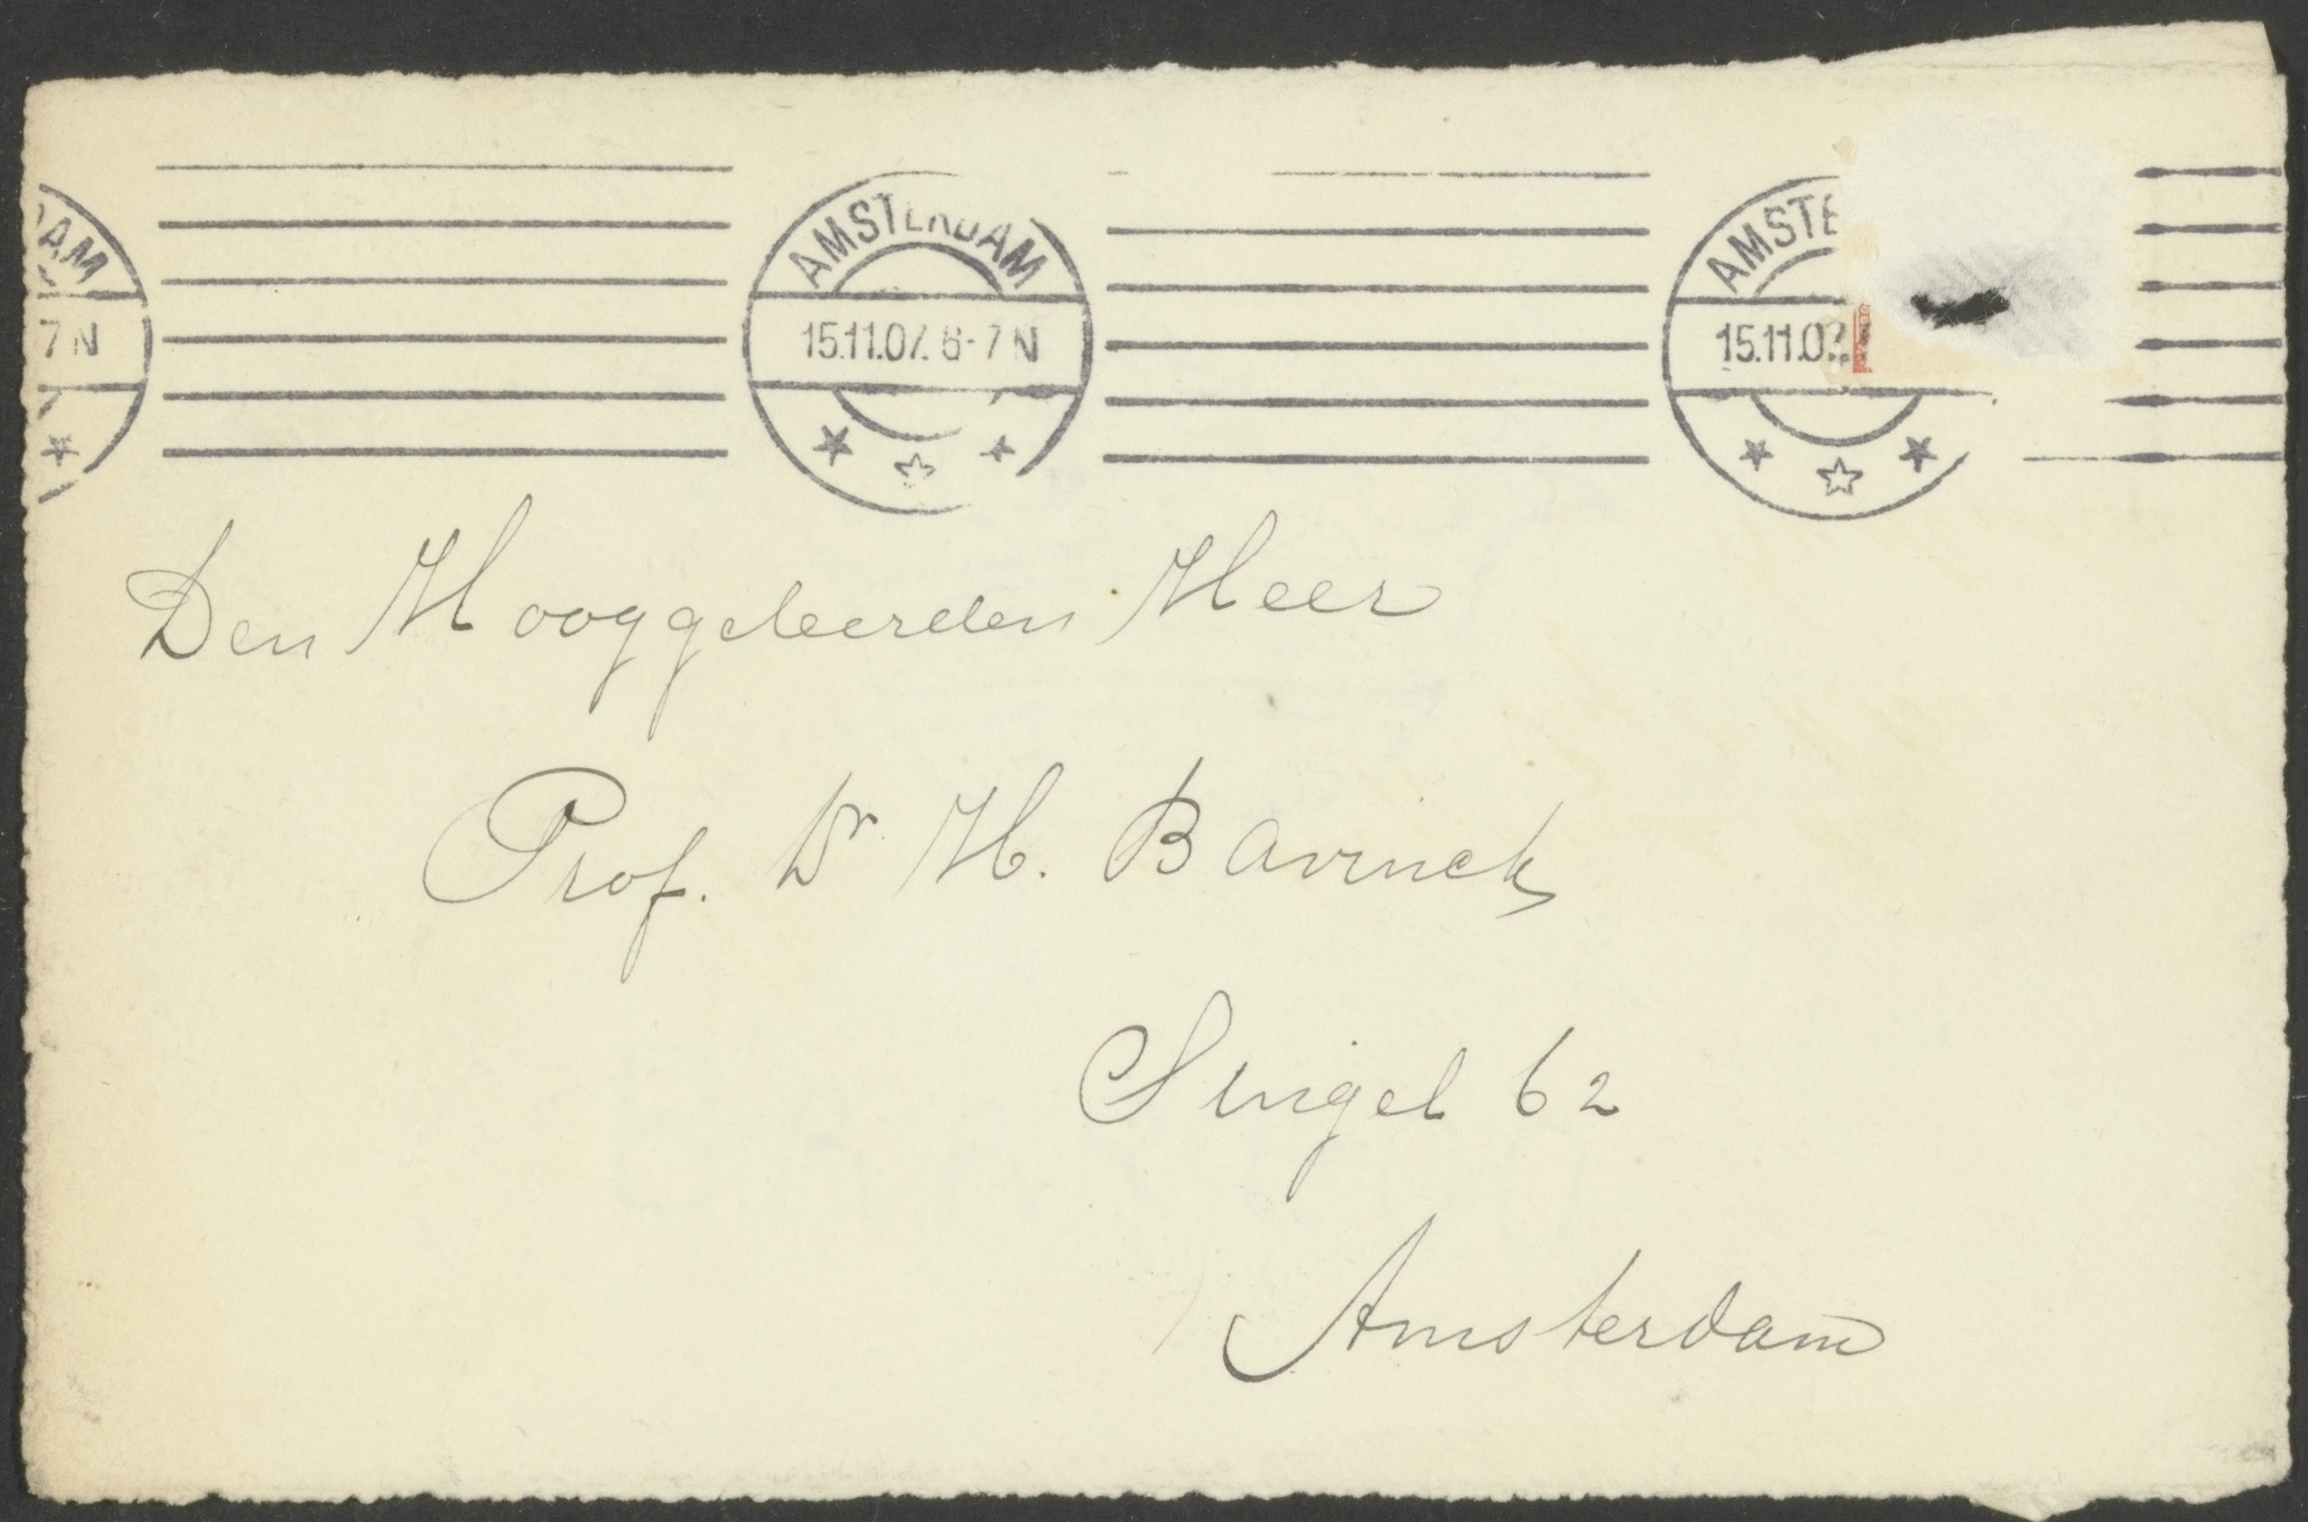 DAM AMSTERDAM AMSTE
7 N 15.11.07. 6-7 N 15.11.07.
Den Hooggeleerden Heer
Prof. Dr. H. Bavinck
Singel 62
Amsterdam